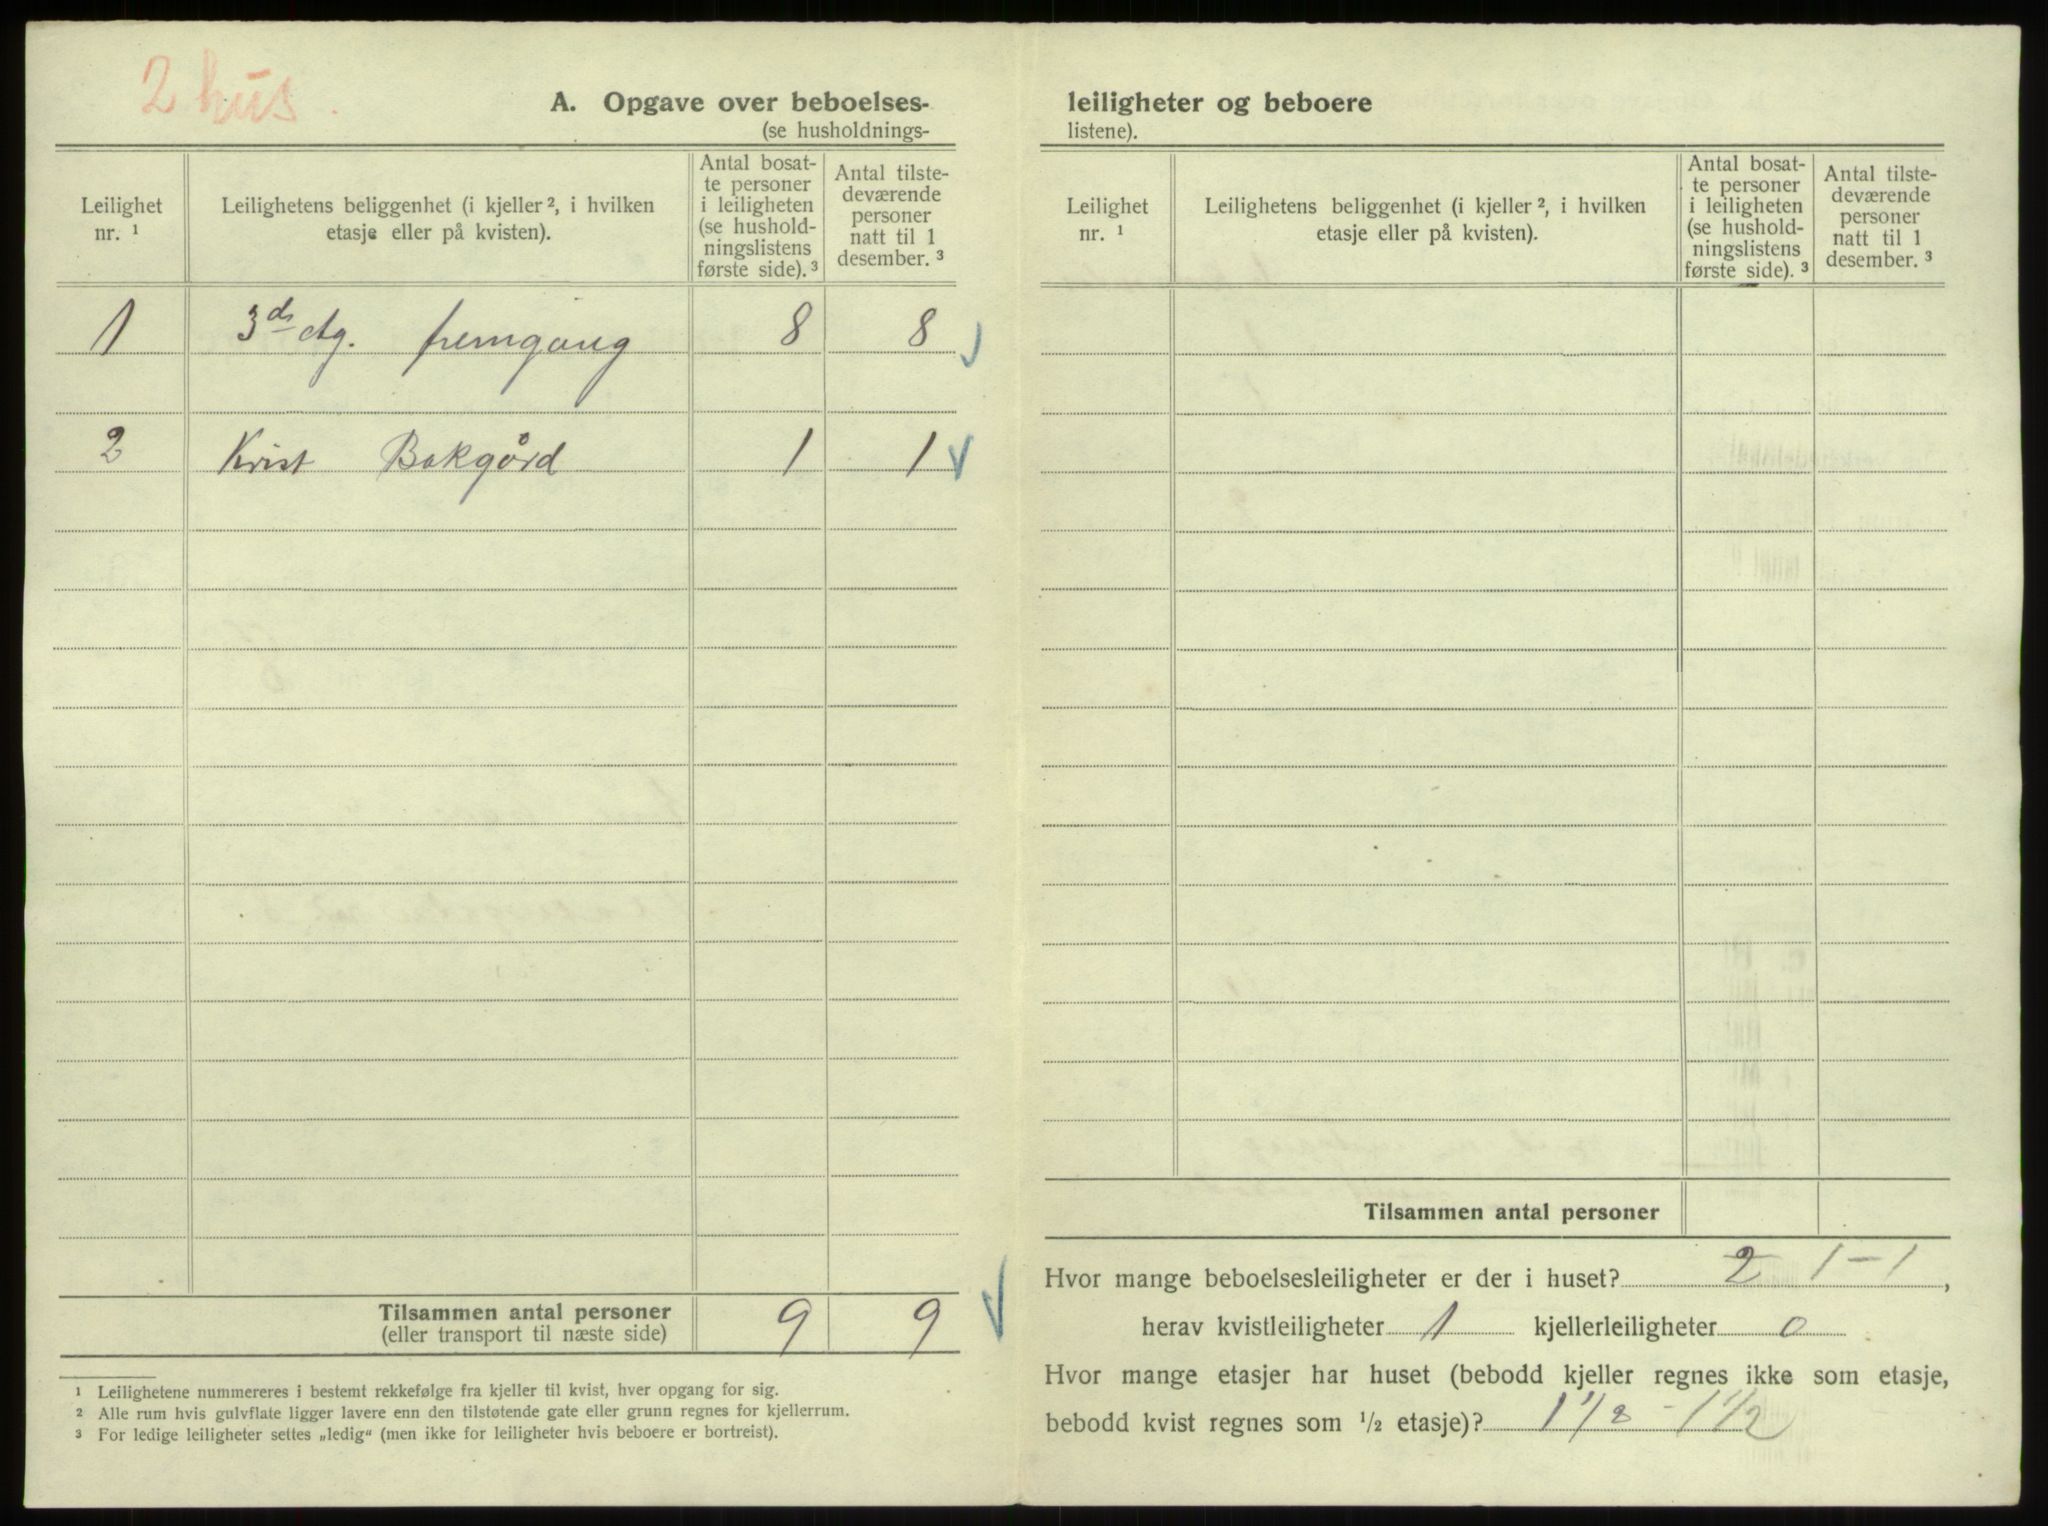 2 hus.
A. Opgave over beboelses-
(se husholdnings-
Leilighet nr. ¹
Leilighetens beliggenhet (i kjeller ², i hvilken etasje eller på kvisten).
Antal bosatte personer i leiligheten (se husholdningslistens første side). ³
Antal tilstedeværende personer natt til 1 desember. ³
1 3 etg. fremgang 8 8
2 Kvist Bakgård 1 1
Tilsammen antal personer 9 9
(eller transport til næste side)
¹ Leilighetene nummereres i bestemt rekkefølge fra kjeller til kvist, hver opgang for sig.
² Alle rum hvis gulvflate ligger lavere enn den tilstøtende gate eller grunn regnes for kjellerrum.
³ For ledige leiligheter settes „ledig“ (men ikke for leiligheter hvis beboere er bortreist).
leiligheter og beboere
listene).
Leilighet nr. ¹
Leilighetens beliggenhet (i kjeller ², i hvilken etasje eller på kvisten).
Antal bosatte personer i leiligheten (se husholdningslistens første side). ³
Antal tilstedeværende personer natt til 1 desember. ³
Tilsammen antal personer
Hvor mange beboelsesleiligheter er der i huset? 2 1 – 1,
herav kvistleiligheter 1 kjellerleiligheter 0
Hvor mange etasjer har huset (bebodd kjeller regnes ikke som etasje,
bebodd kvist regnes som ½ etasje)? - 1 ½